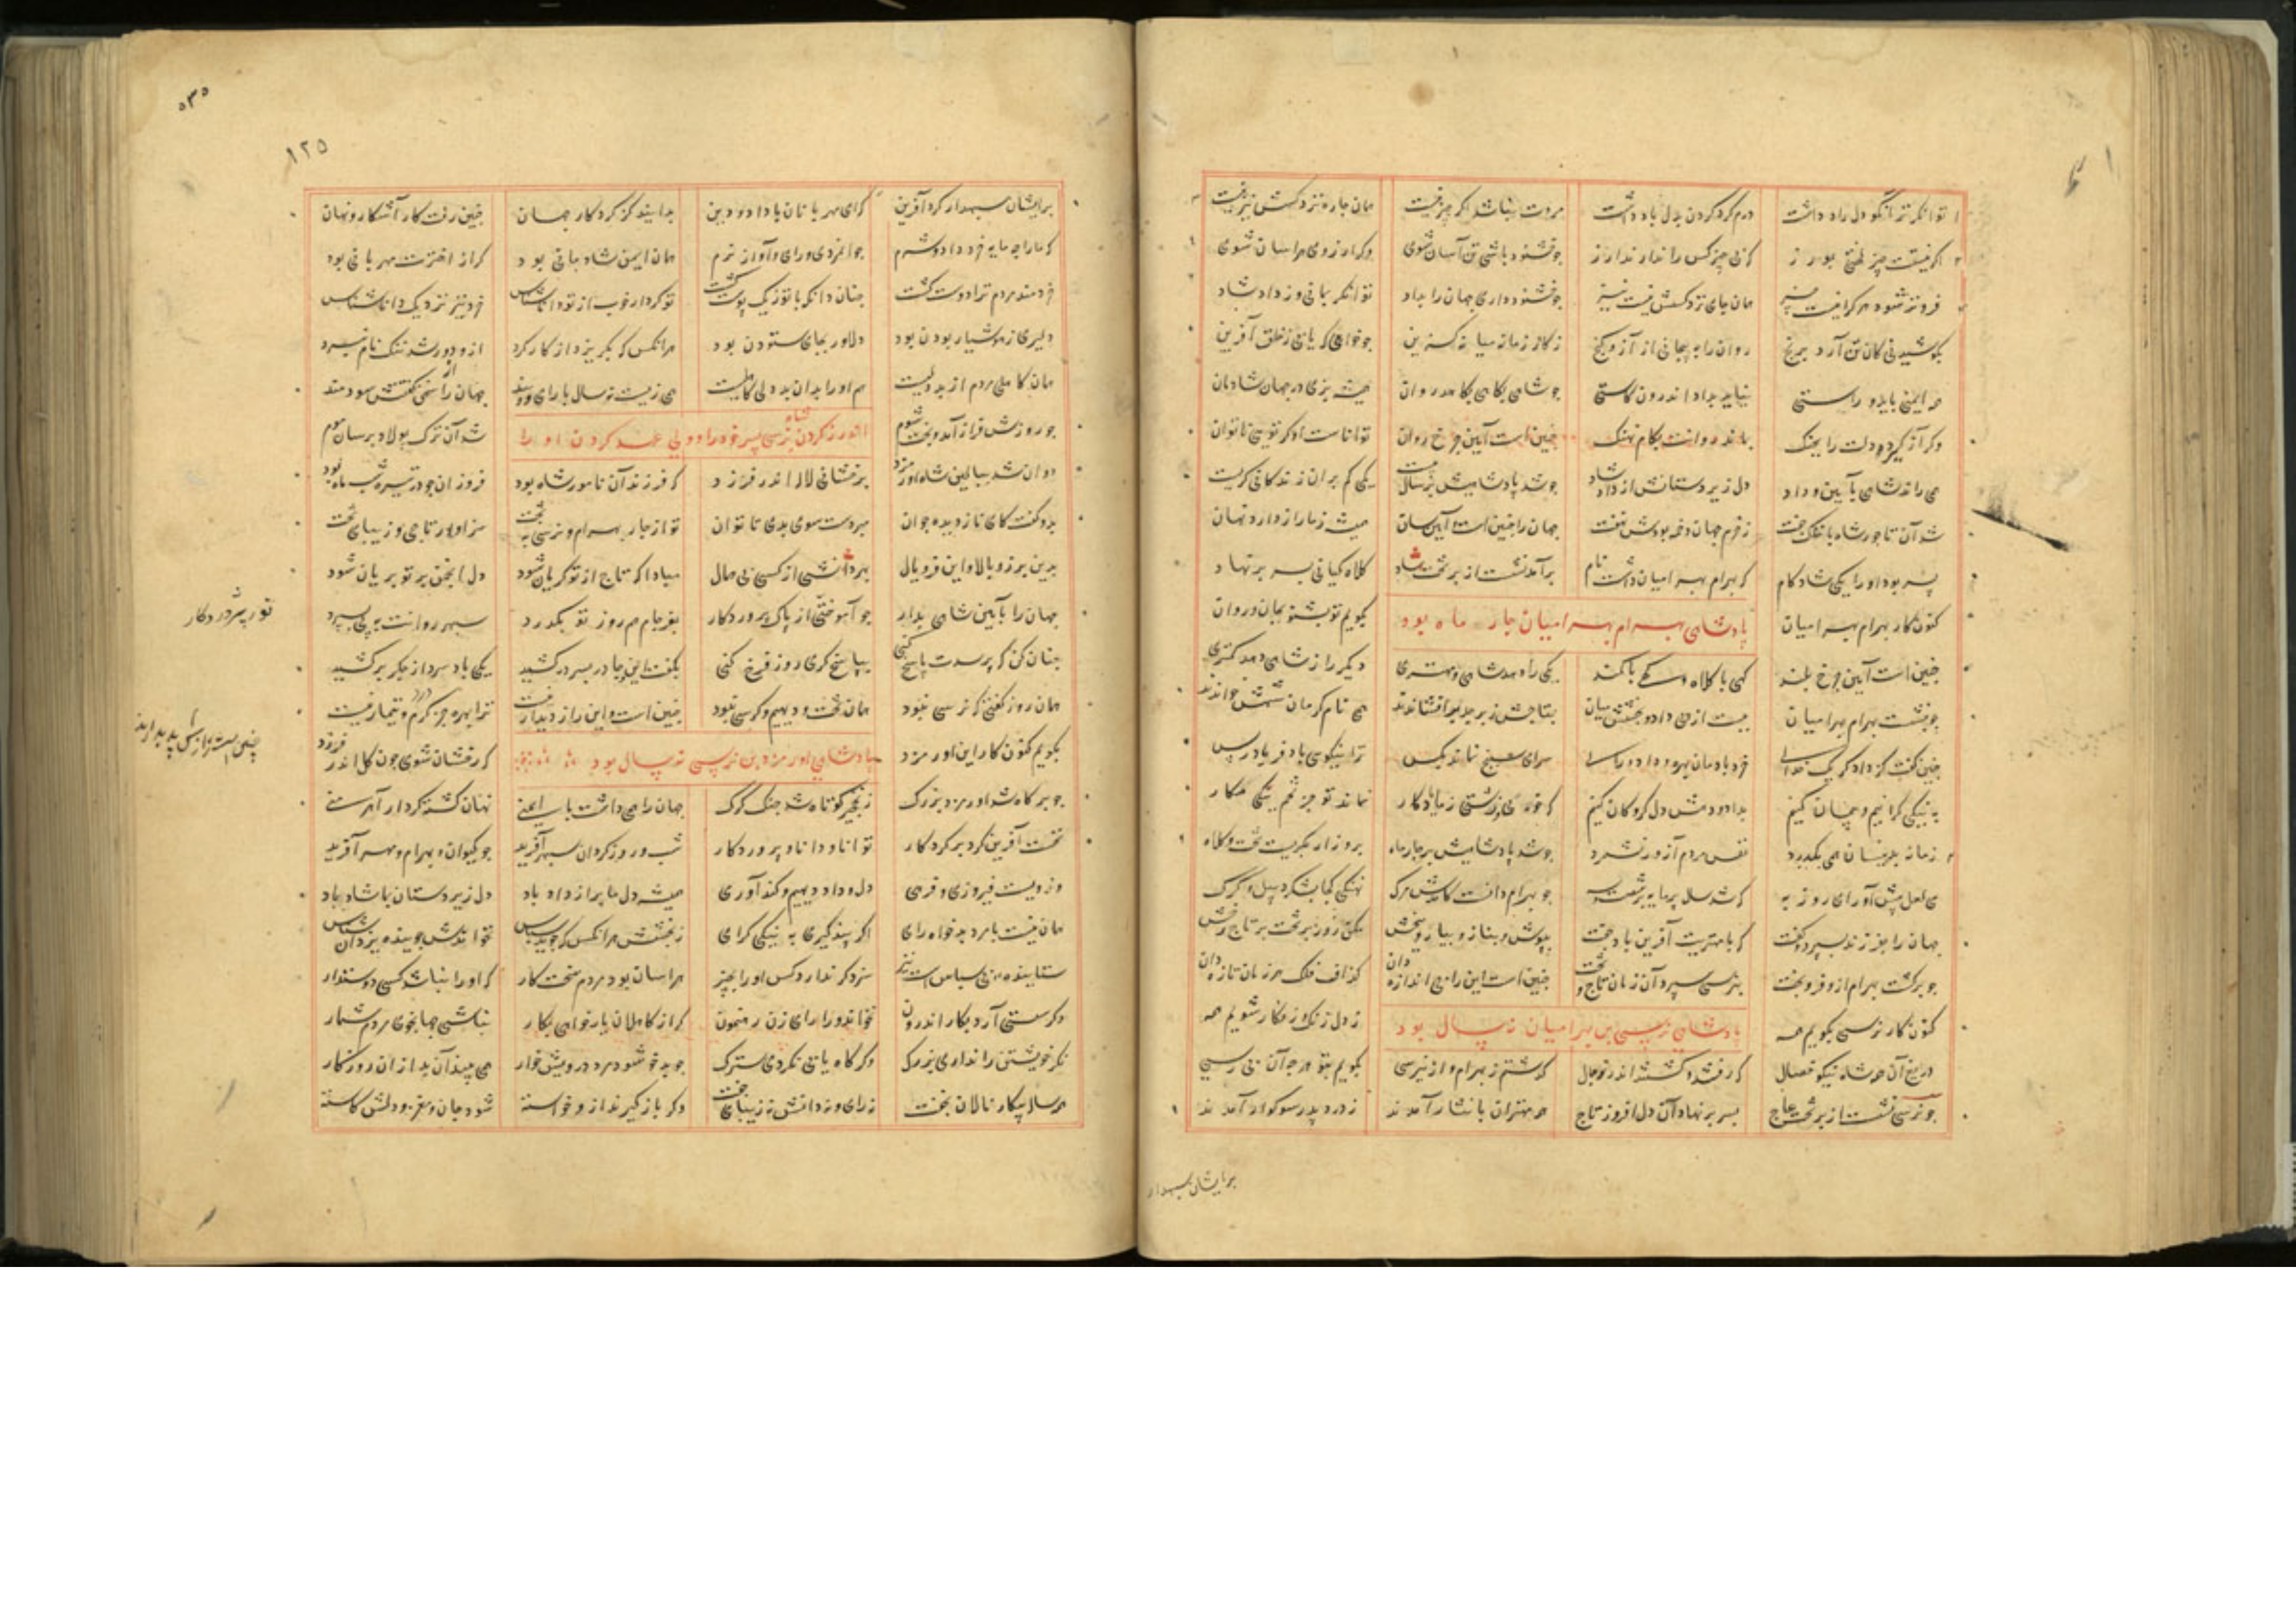 توانگر تر آنکو دل راد داشت درم گرد کردن بدل باد داشت مروت نباشد اگر چیز نیست همان جاه نزد کسش نیز نیست
اگر نیستت چیز لختی بورز که بی چیز کس را ندارند ارز چو خشنود باشی تن آسان شوی وگر آز ورزی هراسان شوی
فروتر شود هر کرا نیست چیز همان جای نزد کسش نیست نیز چو خشنود داری جهان را بداد توانگر بمانی و زداد شاد
بکوشیدنی کان تن آرد برنج روان را به پیچانی از آز و گنج ز کار زمانه میانه گزین چو خواهی که یابی ز خلق آفرین
همه ایمنی باید و راستی نیاید بداد اندرون کاستی چو شاهی بکامی بکاهد روان همیشه بزی در جهان شادمان
وگر آز گیرد دلت را بچنگ بماند روانت بکام نهنگ چنین است آیین چرخ روان تواناست او گر تویی ناتوان
همی راند شاهی بآیین و داد دل زیردستانش از داد شاد چو شد پادشاهیش بر سال بیست یکی کم بران زندگانی گریست
شد آن تاجور شاه با خاک جفت ز خرم جهان دخمه بودش نهفت جهان را چنین است آیین و سان همیشه زما راز دارد نهان
پسر بود او را یکی شادکام که بهرام بهرامیان داشت نام بر آمد نشست از بر تخت شاد کلاه کیانی بسر بر نهاد
کنون کار بهرام بهرامیان بگویم تو بشنو بجان و روان
پادشاهی بهرام بهرامیان چار ماه بود
چنین است آیین چرخ بلند گهی با کلاه و گهی با کمند یکی راه همه شاهی و مهتری دیگر راز شاهی دهد کمتری
چو بنشست بهرام بهرامیان ببست از پی داد و بخشش میان بتاجش زبرجد برافشاندند همی نام کرمان شهش خواندند
چنین گفت کز دادگر یک خدای خرد بادمان بهره و داد و رای سرای سپنج نماند بکس ترا نیکویی باد فریادرس
به نیکی گراییم و پیمان کنیم بداد و دهش دل گروگان کنیم که خوبی و زشتی زما یادگار بماند تو جز تخم نیکی مکار
زمانه برینسان همی بگذرد نفس مردم آزور نشمرد چو شد پادشاهیش بر چار ماه برو زار بگریست تخت و کلاه
می لعل پیش آور ای روزبه که شد سال پرمایه بر شصت و سه چو بهرام دانست کامدش مرگ نهنگی کجا بشکرد پیل و کرگ
جهان را بفرزند بسپرد و گفت که با مهتریت آفرین باد جفت بپوش و بناز و بیاز و ببخش مکن روز بر تخت بر تاج رخش
چو برگشت بهرام از و فر و بخت بنرسی سپرد آن زمان تاج و تخت چنین است این را بی اندازه دان گذاف فلک هر زمان تازه دان
کنون کار نرسی بگویم همه ز دل زنگ و زنگار شویم همه
پادشاهی نرسی بن بهرامیان نه سال بود
دریغ آن همه شاه نیکو خصال که رفتند و گشتند اندر توجال گذشتم ز بهرام و از نرسی بگویم بتو هر چه آن می رسی
چو نرسی نشست از بر تخت عاج بسر بر نهاد آن دل افروز تاج همه مهتران با نثار آمدند ز درد پدر سوگوار آمدند
بر ایشان سپهدار
۱۲۵
بر ایشان سپهدار کرد آفرین که ای مهربانان با داد و دین بدانید کز کردگار جهان چنین رفت کار آشکار و نهان
که ما را چه مایه خرد داد و شرم جوانمردی و رای و آواز نرم همان ایمن شاد مانی بود کر از اخترت مهربانی بود
خردمند مردم ترا دوست گشت چنان دانکه با تو ز یک پوست گشت تو کردار خوب از توانا شناس خرد نیز نزدیک دانا شناس
دلیری ز هشیار بودن بود دلاور بجای ستودن بود هر آنکس که بگریزد از کارکرد ازو دور شد ننگ و نام نبرد
همان کاهلی مردم از بددلیست هم او را بدان بددلی کاهلیست همی زیست نه سال با رای و پند جهان را سخن گفتنش سودمند
چو روزش فراز آمد و بخت شوم شد آن ترک پولاد بر سان موم
اندرز کردن شاه نرسی پسر خود را و ولی عهد کردن او را
دوان شد ببالین شاه اورمزد برخشانی لاله اندر فرزد که فرزند آن نامور شاه بود فروزان چو در تیره شب ماه بود
بدو گفت کای نازدیده جوان مبر دست سوی بدی تا توان تو از جای بهرام و نرسی به تخت سزاوار تاجی و زیبای تخت
بدین برز و بالا و این فر و یال بهر دانشی از کسی بی همال مبادا که تاج از تو گریان شود دل انجمن بر تو بریان شود
جهان را بآیین شاهی بدار چو آموختی از پاک پروردگار بفرجام هم روز تو بگذرد سپهر روانت به پی بسپرد
چنان کن که پرسدت پاسخ کنی بپاسخ گری روز فرخ کنی بگفت این و چادر بسر در کشید یکی باد سرد از جگر برکشید
همان روز گفتی که نرسی نبود همان تخت و دیهیم و کرسی نبود چنین است و این راز دیدار نیست ترا بهره جز گرم و تیمار نیست
بگویم کنون کار این اورمزد که رخشان شوی چون گل اندر فرزد
پادشاهی اورمزد بن نرسی نه سال بود
چو بر گاه شد اورمزد بزرگ ز نخجیر کوتاه شد چنگ گرگ جهان را همی داشت با ایمنی نهان گشت کردار آهرمنی
نخست آفرین کرد بر کردگار توانا و دانا و پروردگار شب و روز و گردان سپهر آفرید چو کیوان و بهرام و مهر آفرید
وزویست فیروزی و فرهی دل و داد و دیهیم و کندآوری همیشه دل ما پر از داد باد دل زیردستان ما شاد باد
همان نیست با مرد بدخواه رای اگر پندگیری به نیکی گرای ز بخشش هر آنکس که جوید سپاس نخواندش جوینده یزدان شناس
ستاینده می سپاس است نیز سزد گر ندارد کس او را بچیز هراسان بود مردم سخت کار که او را نباشد کسی دوستدار
وگر سستی آرد بکار اندرون نخواند ورا رای زن رهنمون گر از کاهلان یار خواهی بکار نباشی جهانجوی مردم شمار
نگر خویشتن را نداری بزرگ وگر گاه یابی نگردی سترگ چو بدخو شود مرد درویش خوار همی بیند آن بد از آن روزگار
همه ساله بیکار و نالان ز بخت ز رای و ز دانش نه زیبای تخت وگر بازگیرند ازو خواسته شود جان و مغز و دلش کاسته